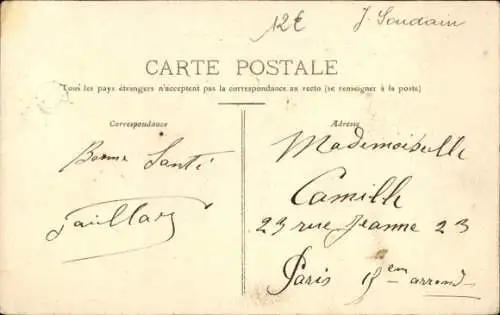 12€
J. Soudain
CARTE POSTALE
Tous les pays étrangers n'acceptent pas la correspondance au recto (se renseigner à la poste)
Correspondance
Bonne Santé
Adresse
Mademoiselle
Camille
23 rue Jeanne 23
Paris 15em arrond